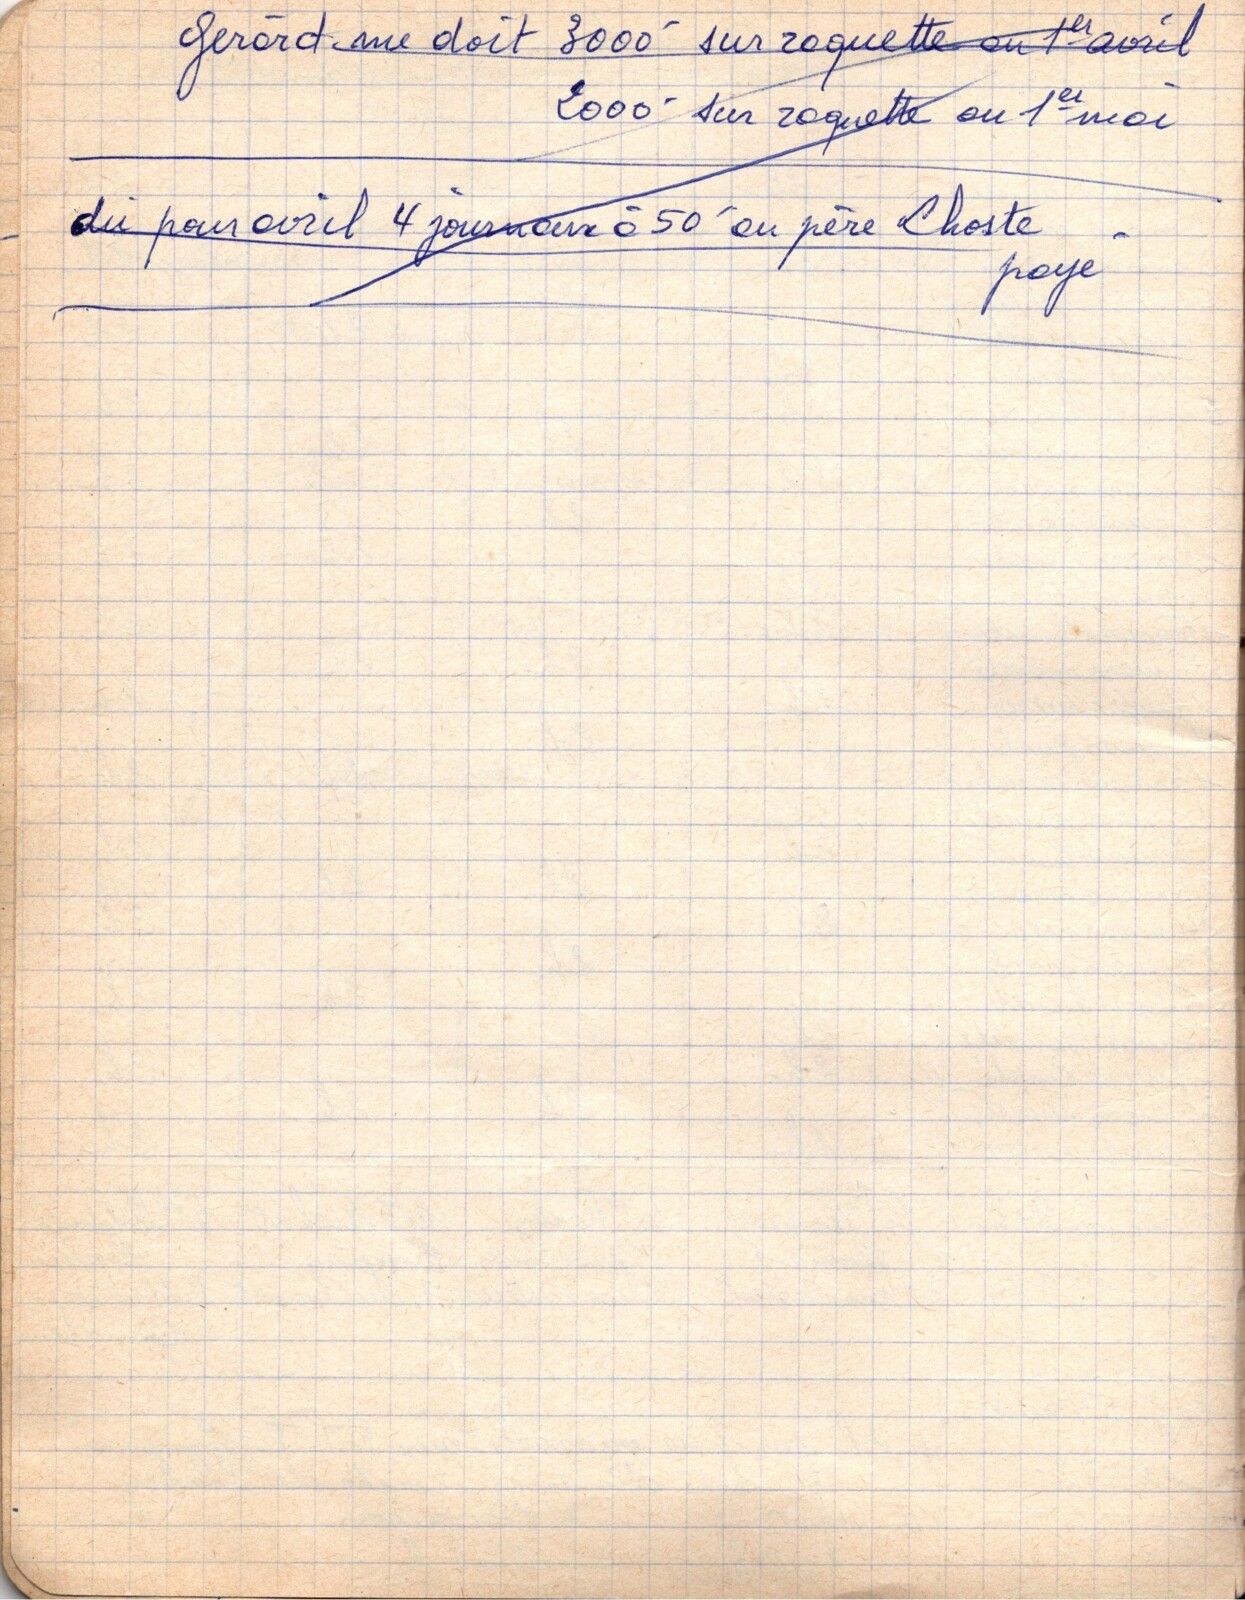 Gerard me doit 3000 sur raquette au 1er avril
2000 sur raquette au 1er mai
dû pour avril 4 journaux à 50 au père Lhoste
payé